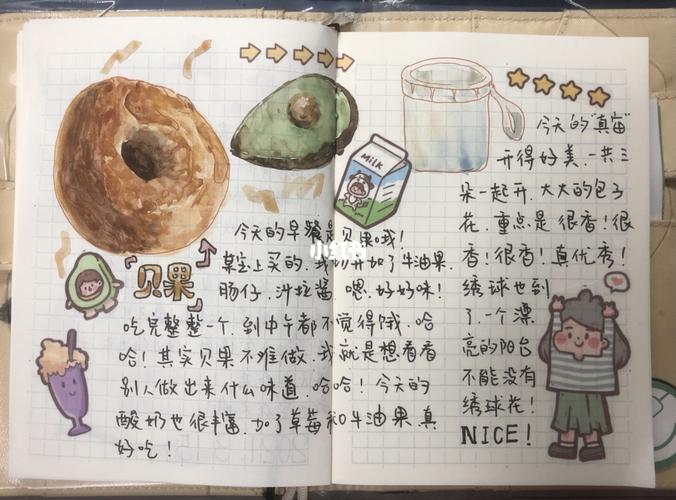 Milk
今天的早餐是贝果哦！
某宝上买的.我切开加了牛油果.
肠仔.沙拉酱.嗯.好好味！
贝果
吃完整整一个.到中午都不觉得饿.哈
哈！其实贝果不难做.我就是想看看
别人做出来什么味道.哈哈！今天的
酸奶也很丰富.加了草莓和牛油果.真
好吃！
小红书
今天的"真宙"
开得好美.一共三
朵一起开.大大的包子
花.重点是很香！很
香！很香！真优秀！
绣球也到
了.一个漂
亮的阳台
不能没有
绣球花！
NICE！